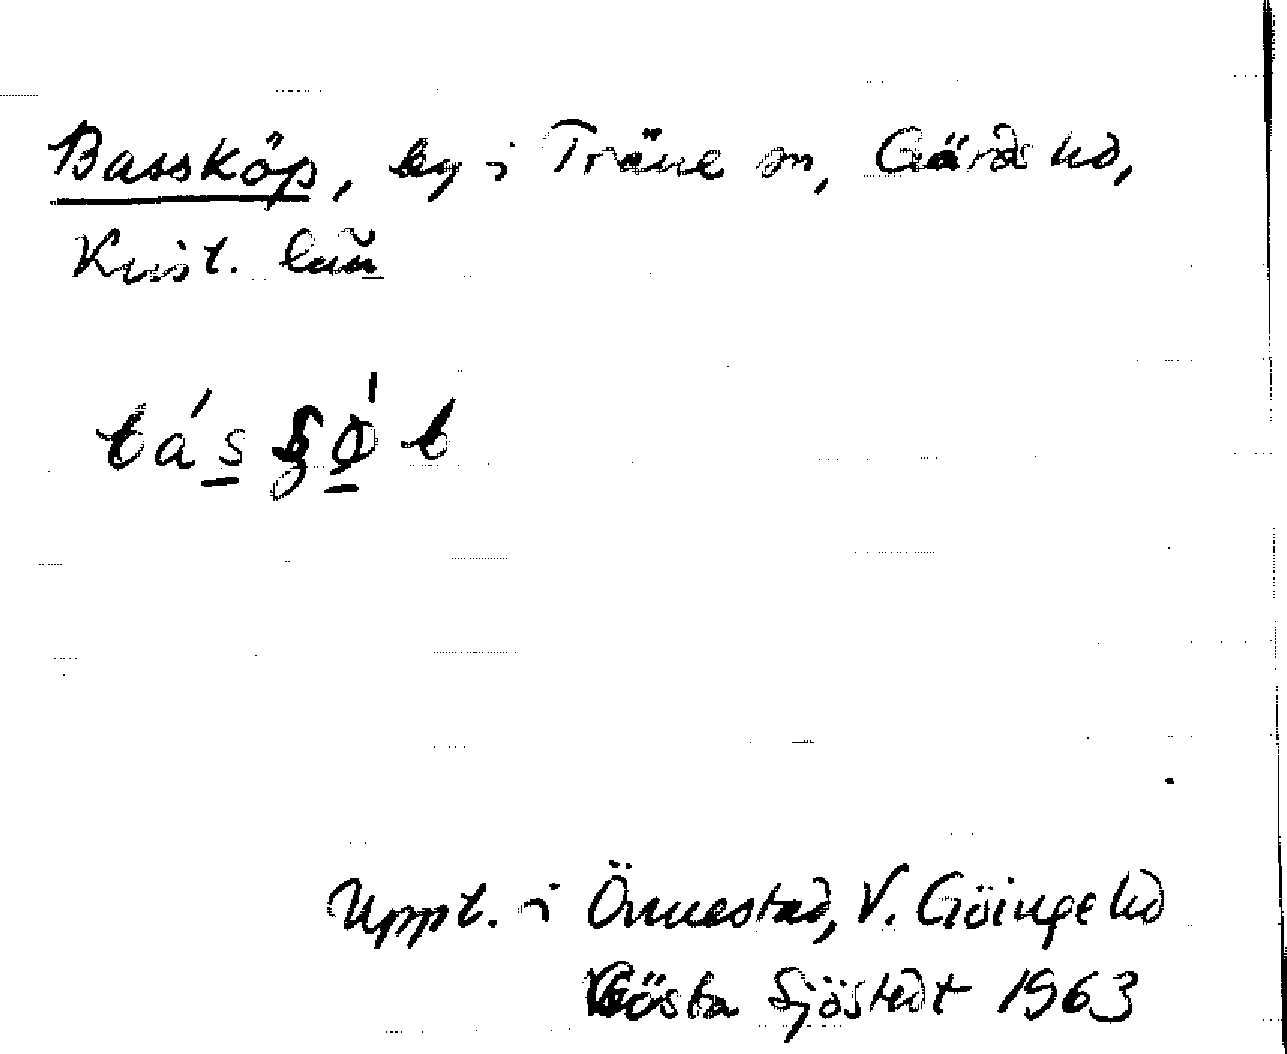 Bassköp, by i Träne sn, Gärds hd,
Krist. län
Uppt. i Önnestad, V. Göinge hd
Gösta Sjöstedt 1963